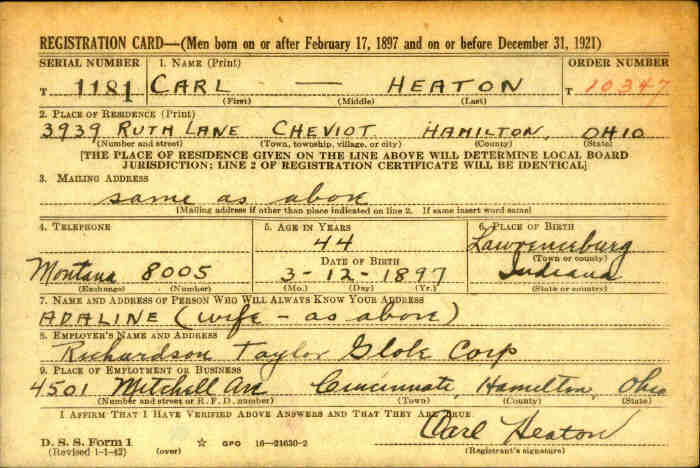 REGISTRATION CARD—(Men born on or after February 17, 1897 and on or before December 31, 1921)
SERIAL NUMBER 1. NAME (Print) ORDER NUMBER
T 1181 CARL — HEATON T 10347
(First) (Middle) (Last)
2. PLACE OF RESIDENCE (Print)
3939 RUTH LANE CHEVIOT HAMILTON, OHIO
(Number and street) (Town, township, village, or city) (County) (State)
[THE PLACE OF RESIDENCE GIVEN ON THE LINE ABOVE WILL DETERMINE LOCAL BOARD
JURISDICTION; LINE 2 OF REGISTRATION CERTIFICATE WILL BE IDENTICAL]
3. MAILING ADDRESS
same as above
[Mailing address if other than place indicated on line 2. If same insert word same]
4. TELEPHONE 5. AGE IN YEARS 6. PLACE OF BIRTH
44 Lawrenceburg
(Town or county)
DATE OF BIRTH
Montana 8005 3-12-1897 Indiana
(Exchange) (Number) (Mo.) (Day) (Yr.) (State or country)
7. NAME AND ADDRESS OF PERSON WHO WILL ALWAYS KNOW YOUR ADDRESS
ADALINE (wife - as above)
8. EMPLOYER'S NAME AND ADDRESS
Richardson Taylor Globe Corp
9. PLACE OF EMPLOYMENT OR BUSINESS
4501 Mitchell Ave Cincinnati, Hamilton, Ohio
(Number and street or R. F. D. number) (Town) (County) (State)
I AFFIRM THAT I HAVE VERIFIED ABOVE ANSWERS AND THAT THEY ARE TRUE.
Carl Heaton
D. S. S. Form 1 ☆ GPO 16—21630-2
(Revised 1-1-42) (over) (Registrant's signature)